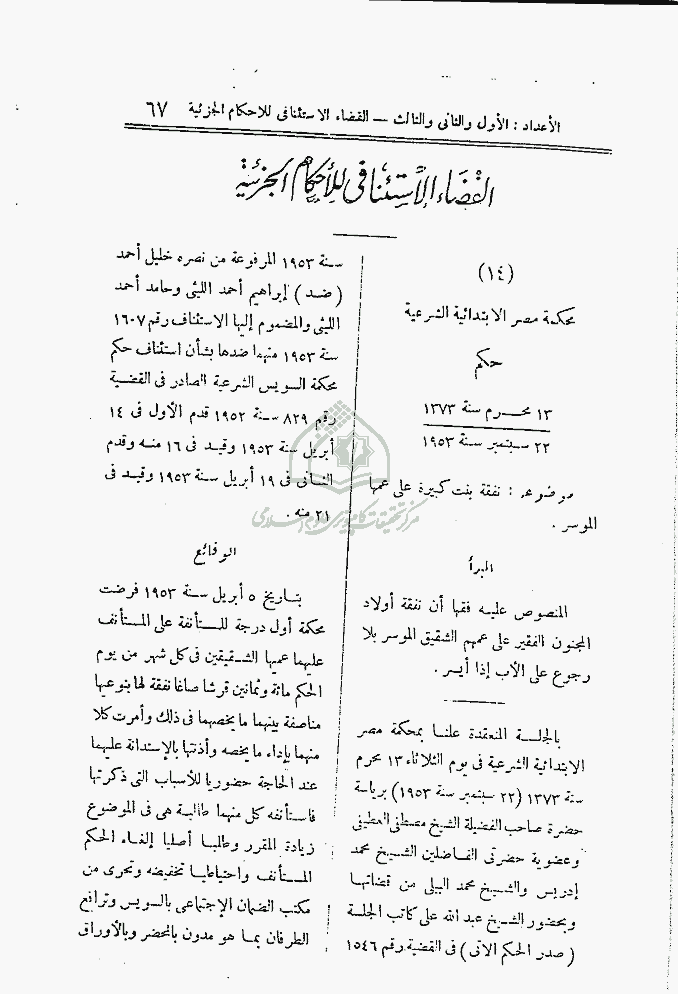 الأعداد : الأول والثانى والثالث — القضاء الاستئنافى للاحكام الجزئية ٦٧
القضاء الاستئنافى للأحكام الجزئية
(١٤)
محكمة مصر الابتدائية الشرعية
حكم
١٣ محرم سنة ١٣٧٣
٢٢ سبتمبر سنة ١٩٥٣
موضوعه : نفقة بنت كبيرة على عمها
الموسر .
المبدأ
المنصوص عليه فقها أن نفقة أولاد
المجنون الفقير على عمهم الشقيق الموسر بلا
رجوع على الأب إذا أيسر .
بالجلسة المنعقدة علنا بمحكمة مصر
الابتدائية الشرعية فى يوم الثلاثاء ١٣ محرم
سنة ١٣٧٣ (٢٢ سبتمبر سنة ١٩٥٣) برياسة
حضرة صاحب الفضيلة الشيخ مصطفى
وعضوية حضرتى الفاضلين الشيخ محمد
إدريس والشيخ محمد البيلى من قضاتها
وبحضور الشيخ عبد الله على كاتب الجلسة
( صدر الحكم الآتى ) فى القضية رقم ١٥٤٦
سنة ١٩٥٣ المرفوعة من نصره خليل أحمد
( ضد ) إبراهيم أحمد الليثى وحامد أحمد
الليثى والمضموم إليها الاستئناف رقم ١٦٠٧
سنة ١٩٥٣ منهما ضدها بشأن استئناف حكم
محكمة السويس الشرعية الصادر فى القضية
رقم ٨٢٩ سنة ١٩٥٢ قدم الأول فى ١٤
أبريل سنة ١٩٥٣ وقيد فى ١٦ منه وقدم
الثانى فى ١٩ أبريل سنة ١٩٥٣ وقيد فى
٢١ منه .
الوقائع
بتاريخ ٥ أبريل سنة ١٩٥٣ فرضت
محكمة أول درجة للمستأنفة على المستأنف
عليهما عميها الشقيقين فى كل شهر من يوم
الحكم مائة وثمانين قرشا صاغا نفقة لها بنوعيها
مناصفة بينهما ما يخصهما فى ذلك وأمرت كلا
منهما بإداء ما يخصه وأذنتها بالإستدانة عليهما
عند الحاجة حضوريا للأسباب التى ذكرتها
فاستأنفه كل منهما طالبة هى فى الموضوع
زيادة المقرر وطلبا أصليا إلغاء الحكم
المستأنف واحتياطيا تخفيضه وتحرى من
مكتب الضمان الإجتماعى بالسويس وترافع
الطرفان بما هو مدون بالمحضر وبالأوراق
مركز تحقيقات كامپيوترى علوم اسلامى